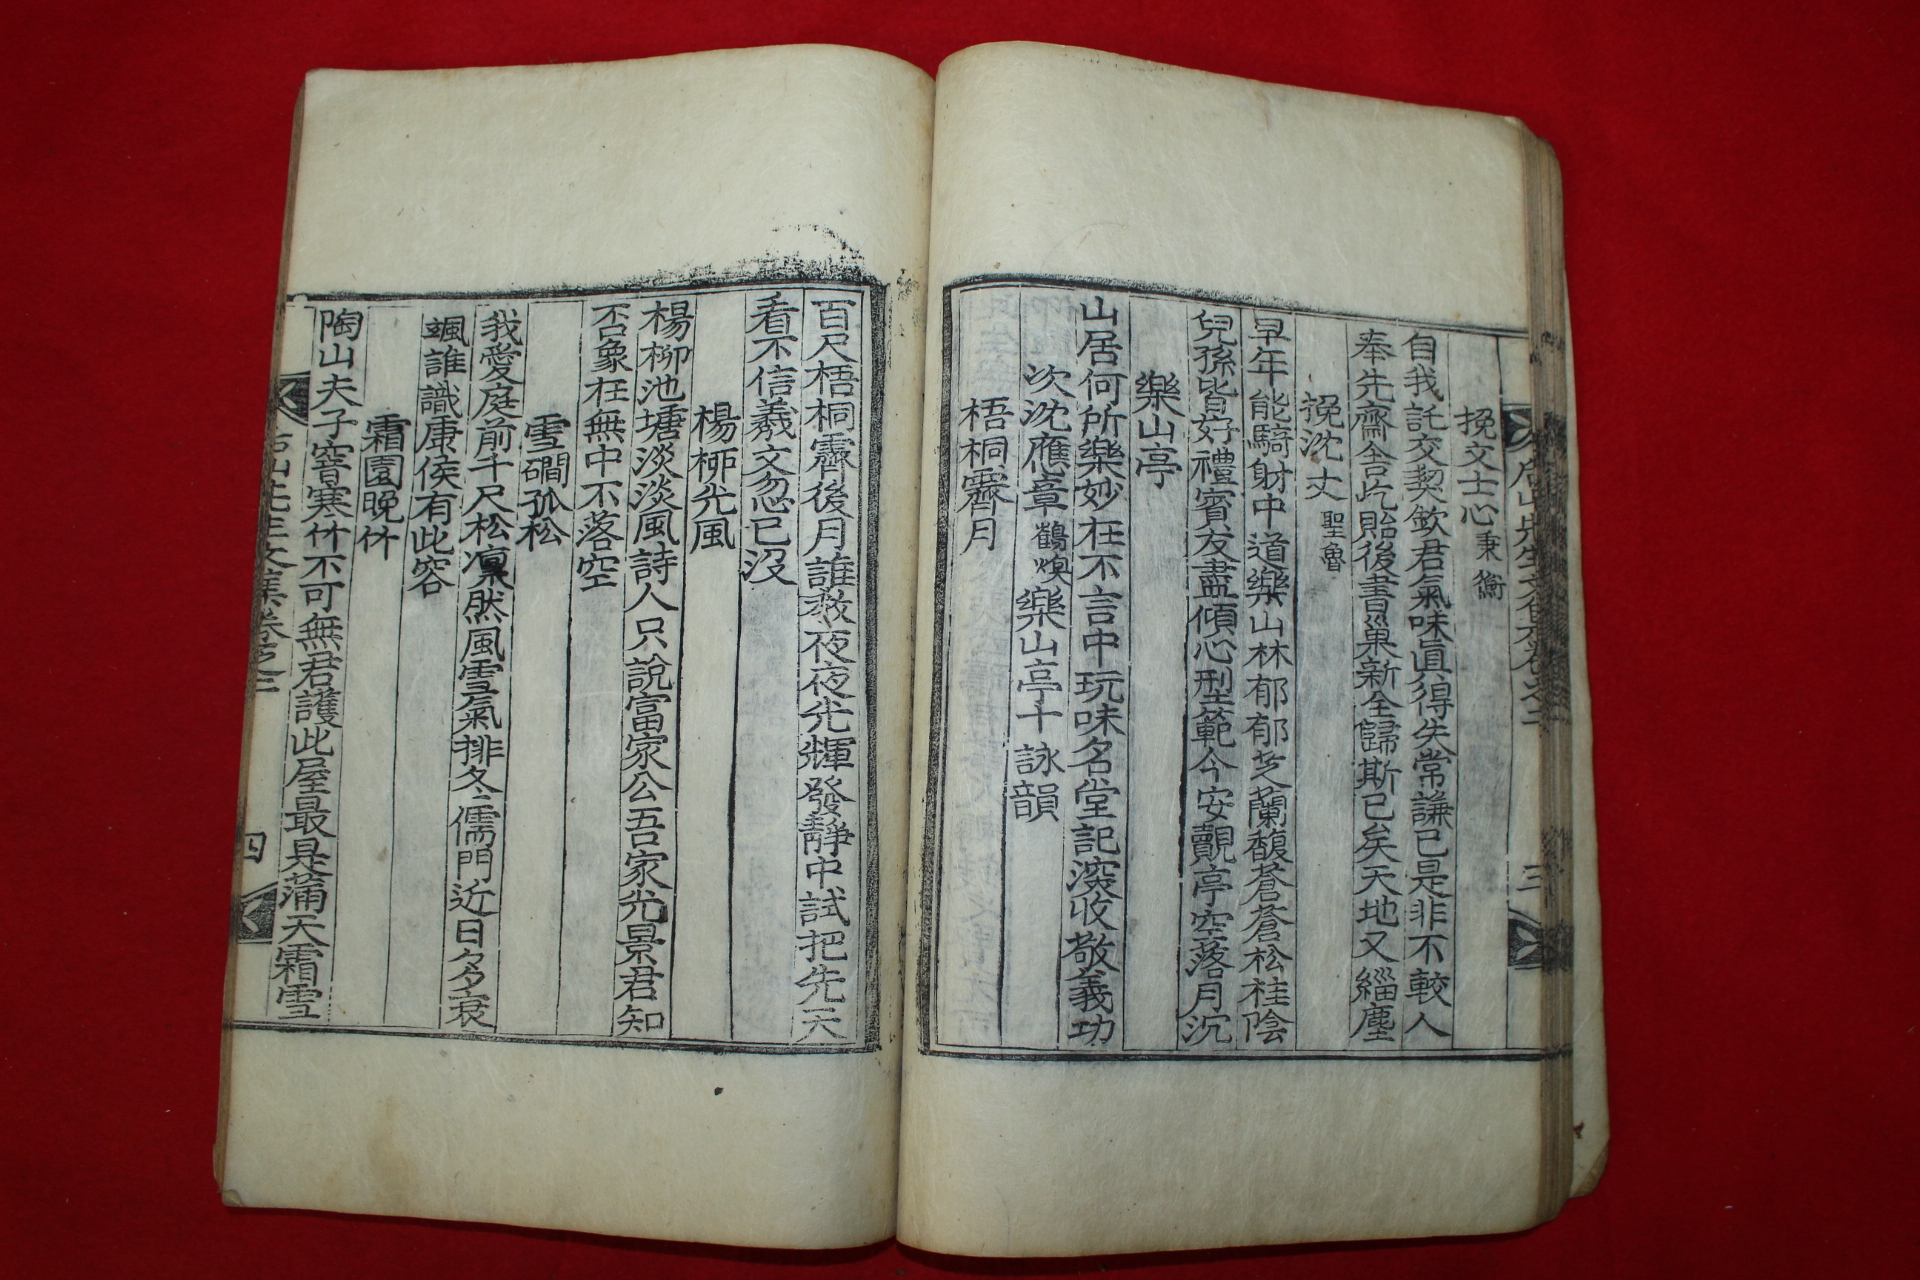 挽文士心秉衡
自我託交契欽君氣味眞得失常謙已是非不較人
奉先齋舍屹貽後書巢新全歸斯已矣天地又緇塵
挽沈丈聖魯
早年能騎射中道樂山林郁郁芝蘭馥蒼蒼松桂陰
兒孫皆好禮賓友盡傾心型範今安覿亭空落月沉
樂山亭
山居何所樂妙在不言中玩味名堂記深收敬義功
次沈應章鶴煥樂山亭十詠韻
梧桐霽月
百尺梧桐霽後月誰敎夜夜光輝發靜中試把先天
看不信義文忽已沒
楊柳光風
楊柳池塘淡淡風詩人只說富家公吾家光景君知
否象在無中不落空
雪磵孤松
我愛庭前千尺松凜然風雪氣排冬儒門近日多衰
颯誰識康侯有此容
霜園晚竹
陶山夫子窨寒竹不可無君護此屋最是滿天霜雪
先生文集卷之二
四